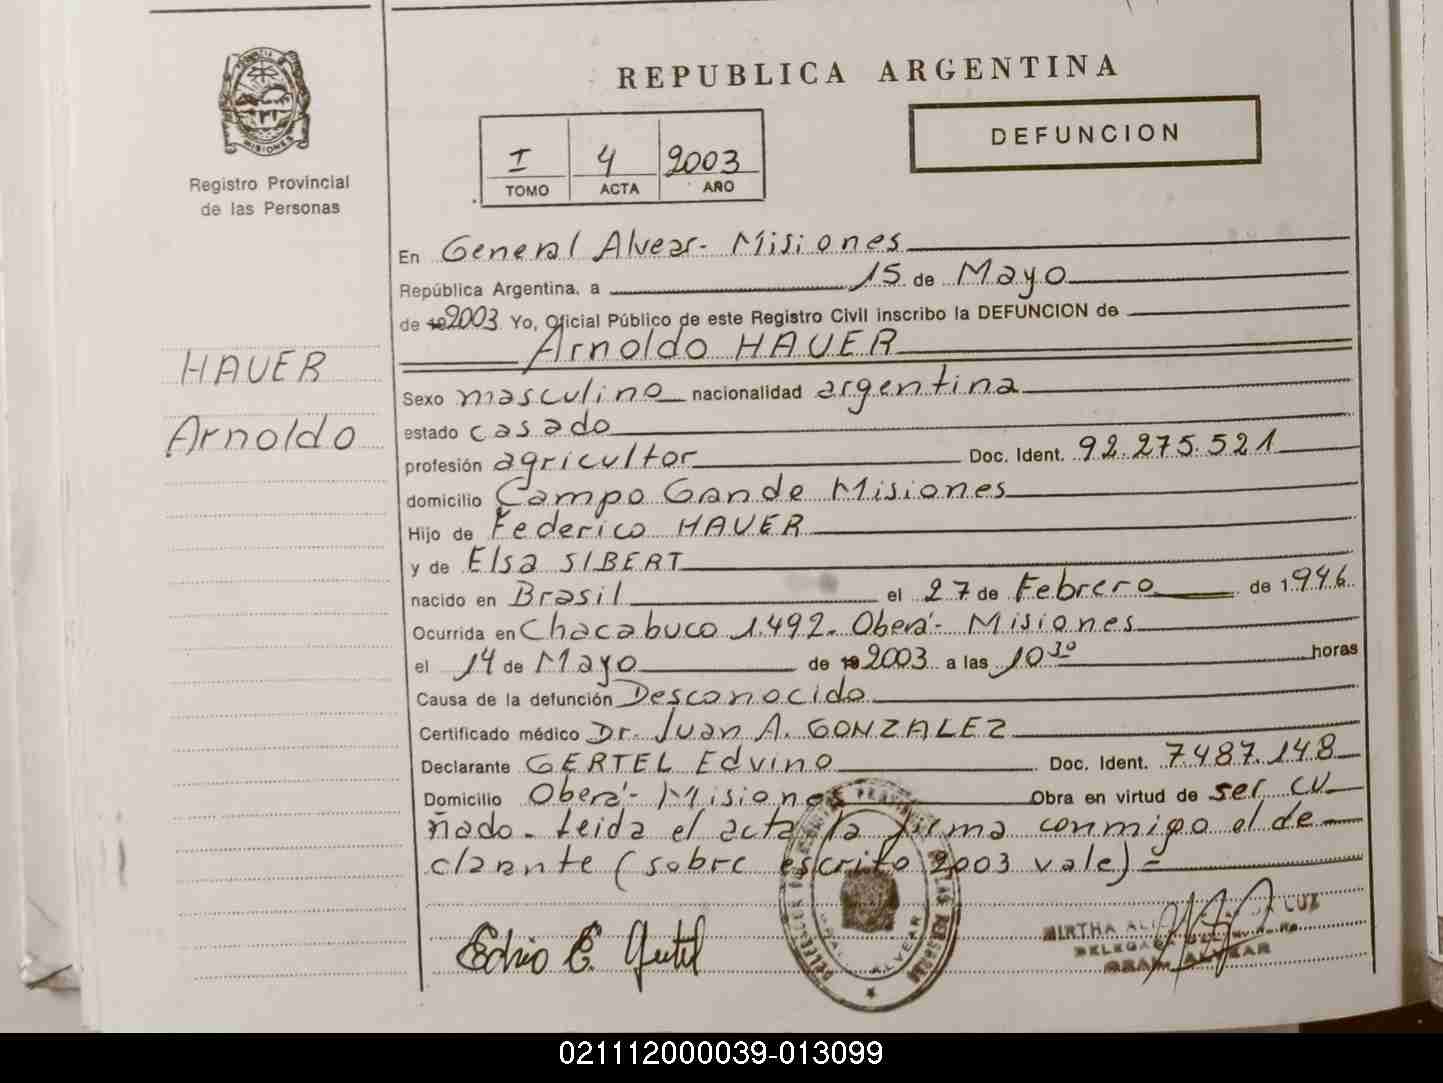 REPUBLICA ARGENTINA
DEFUNCION
I 4 2003
TOMO ACTA AÑO
MISIONES
Registro Provincial
de las Personas
HAUER
Arnoldo
En General Alvear- Misiones
República Argentina, a 15 de Mayo
de 19 2003. Yo, Oficial Público de este Registro Civil inscribo la DEFUNCION de
Arnoldo HAUER
Sexo masculino nacionalidad argentina
estado casado
profesión agricultor Doc. Ident. 92.275.521
domicilio Campo Grande Misiones
Hijo de Federico HAUER
y de Elsa SIBERT
nacido en Brasil el 27 de Febrero de 1946.
Ocurrida en Chacabuco 1.492- Oberá- Misiones
el 14 de Mayo de 19 2003 a las 10 30 horas
Causa de la defunción Desconocida
Certificado médico Dr. Juan A. GONZALEZ
Declarante GERTEL Edvino Doc. Ident. 7.487.148
Domicilio Oberá- Misiones Obra en virtud de ser cu
ñado. Leida el acta la firma conmigo el de
clarante (sobre escrito 2003 vale) =
MIRTHA CUZ
GRAL. ALVEAR
021112000039-013099